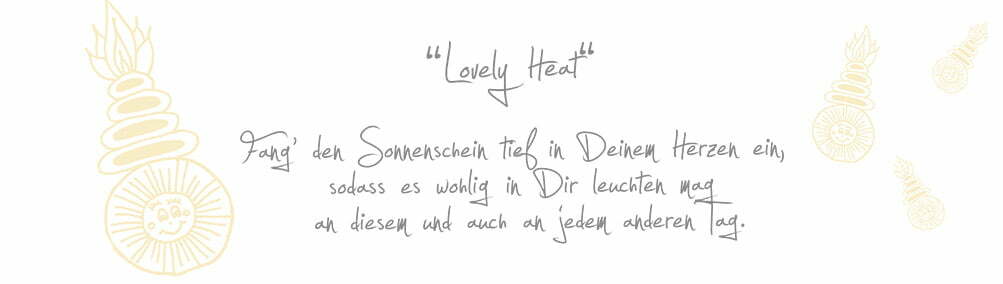 “Lovely Heat“
Fang' den Sonnenschein tief in Deinem Herzen ein,
sodass es wohlig in Dir leuchten mag
an diesem und auch an jedem anderen Tag.